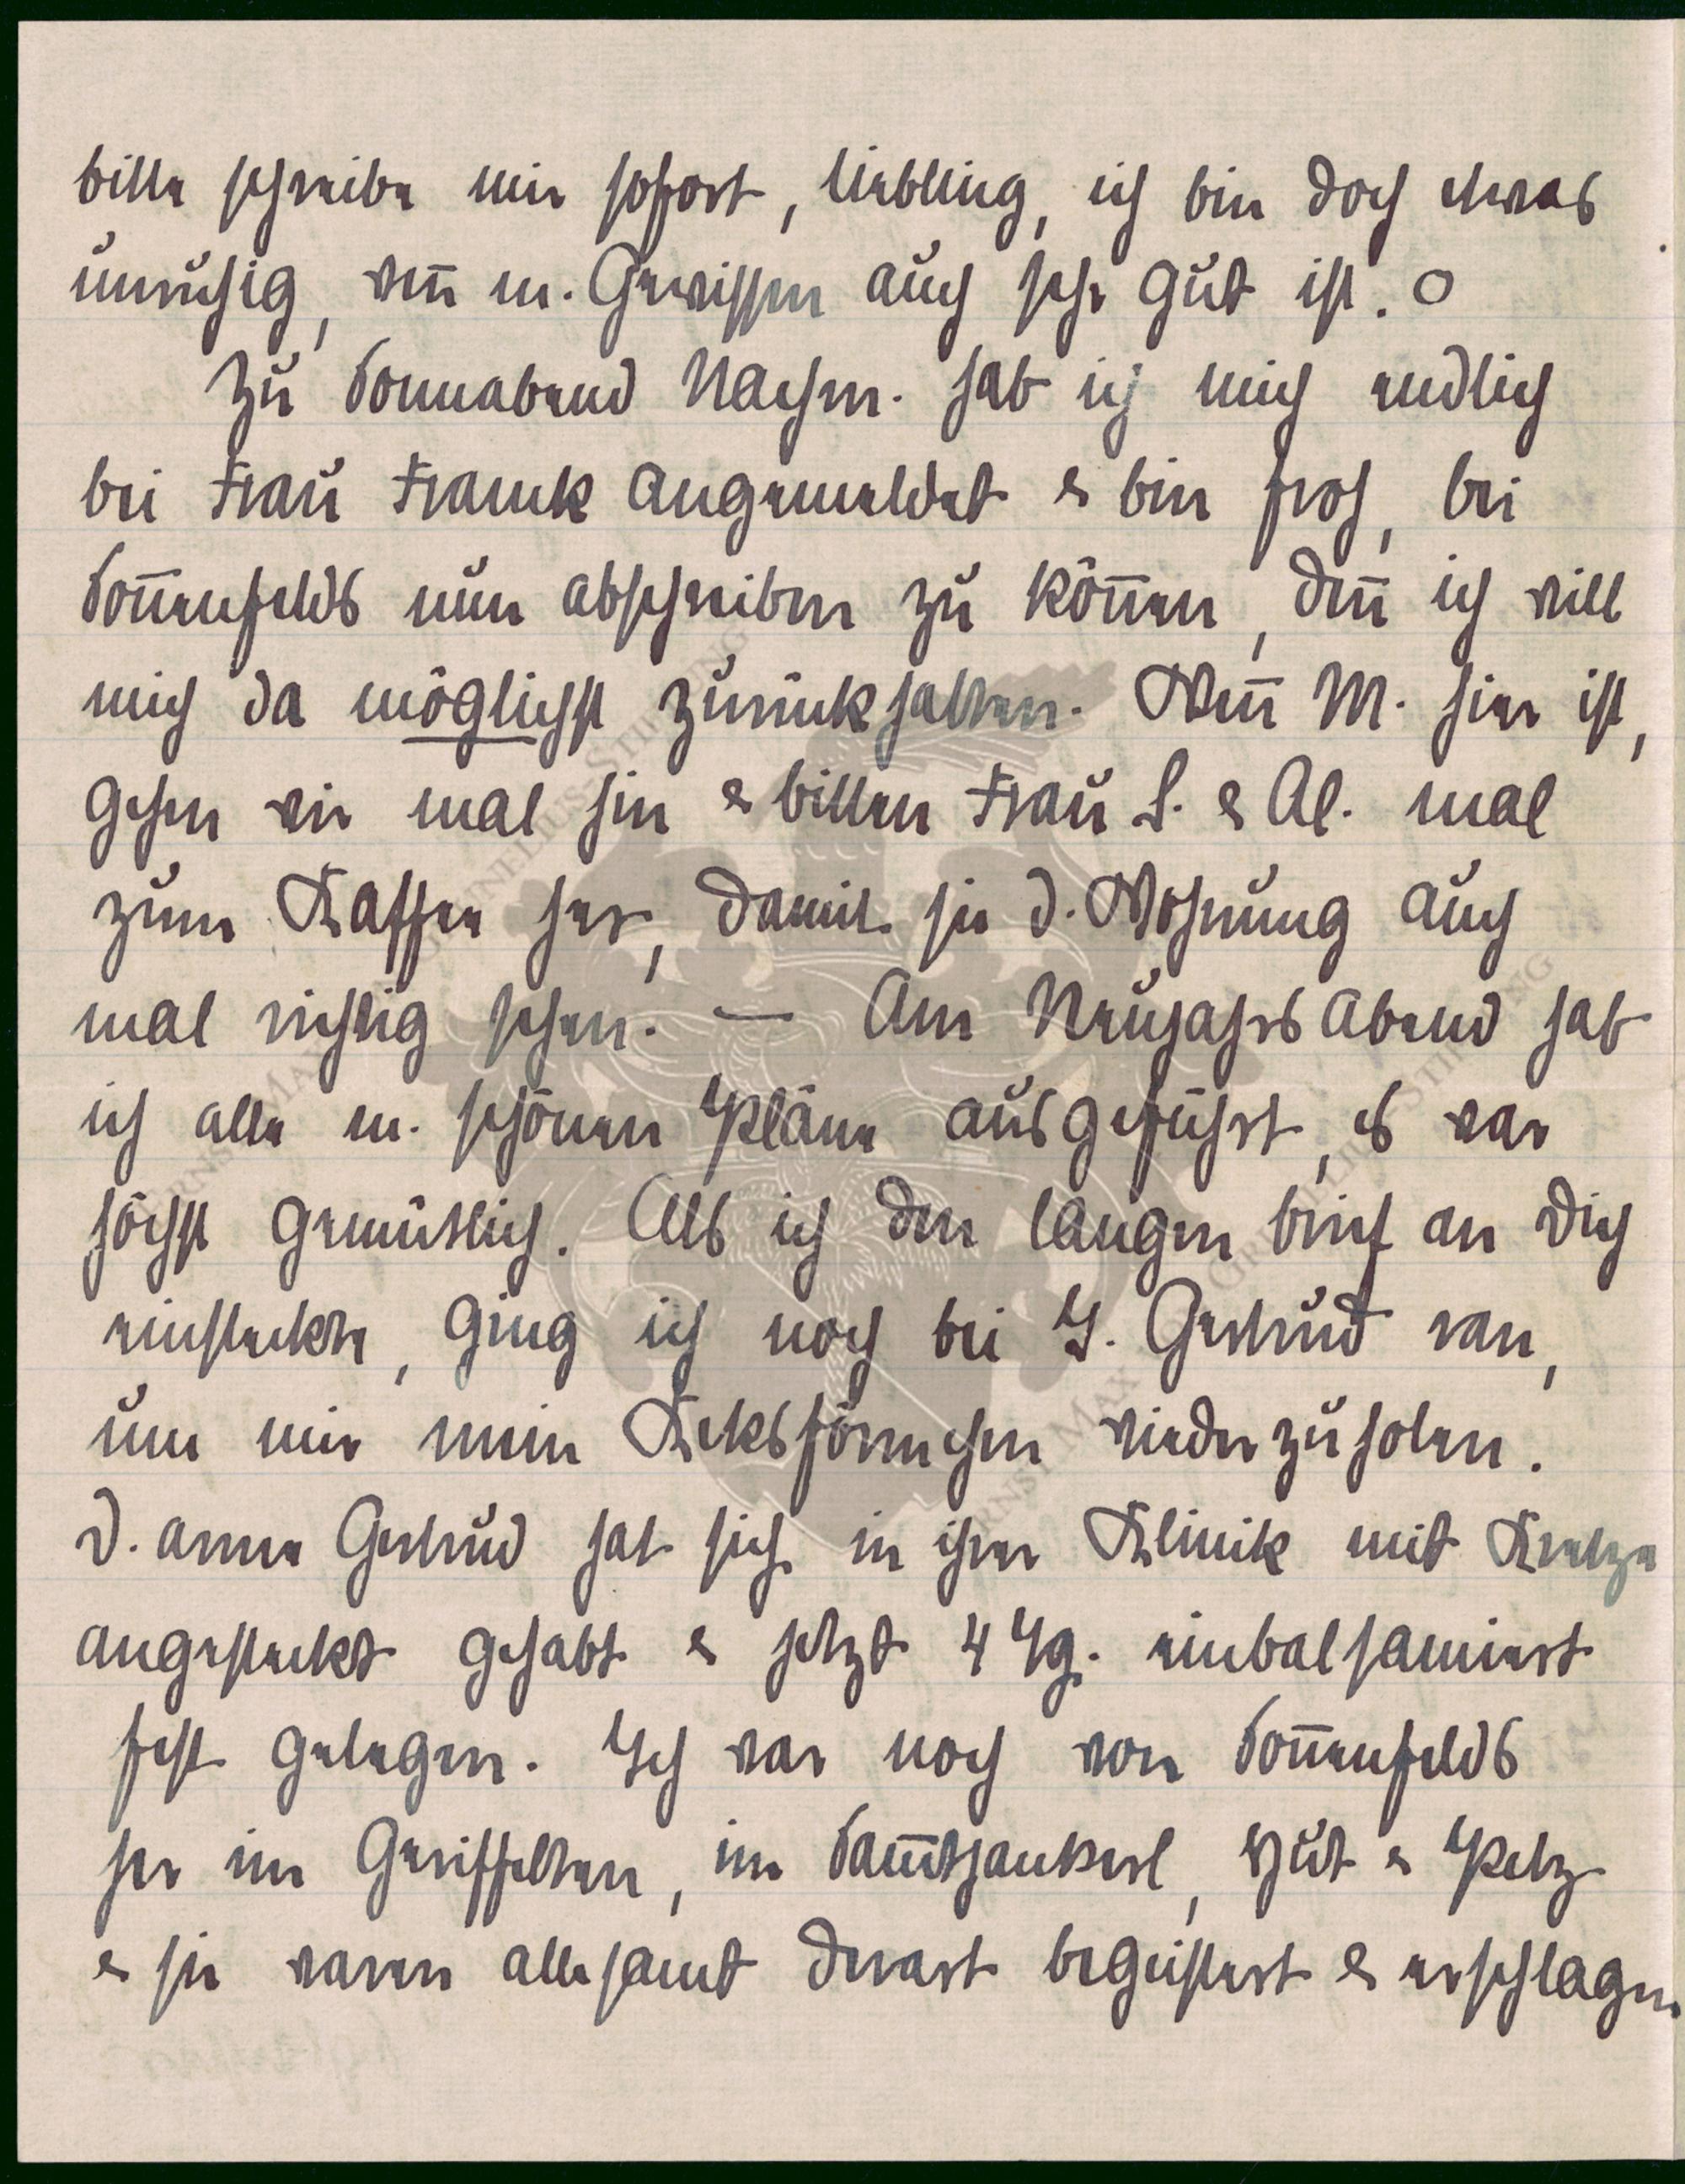 bitte schreibe mir sofort, liebling, ich bin doch etwas
unruhig, wen̄ m. Gewissen auch sehr gut ist. O
Zu Sonnabend Nachm. hab ich mich endlich
bei Frau Franck angemeldet & bin froh, bei
Son̄enfelds nun abschreiben zu kön̄en, den̄ ich will
mich da möglichst zurückhalten. Wen̄ M. hier ist,
gehen wir mal hin & bitten Frau S. & Al. mal
zum Kaffee her, damit sie d. Wohnung auch
mal richtig sehen. — Am Neujahrs Abend hab
ich alle m. schönen Pläne ausgeführt, es war
höchst gemütlich. Als ich den langen brief an Dich
einsteckte, ging ich noch bei T. Gertrud ran,
um mir mein Keksförmchen wiederzuholen.
D. arme Gertrud hat sich in ihrer Klinik mit Kretze
angesteckt gehabt & jetzt 4 Tg. einbalsamiert
fest gelegen. Ich war noch von Son̄enfelds
her im Geriffelten, im Sam̄tjankerl, Hut & Pelz
& sie waren allesamt derart begeistert & erschlagen